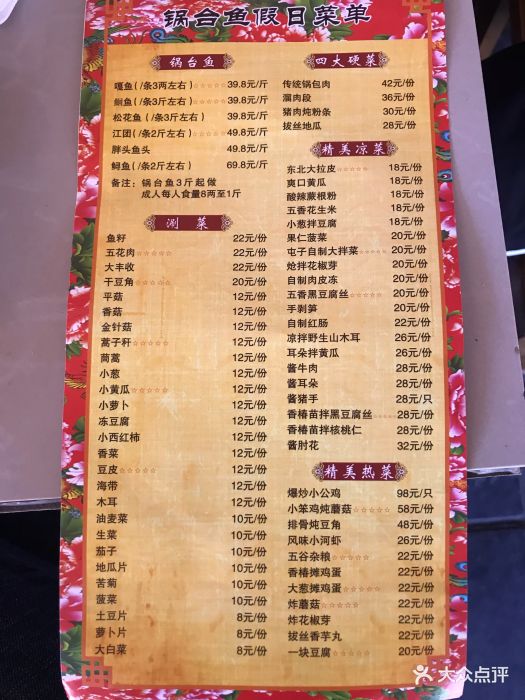 锅台鱼假日菜单
锅台鱼
嘎鱼(/条3两左右)☆☆☆☆☆39.8元/斤
鮰鱼(/条2斤左右)☆☆☆☆☆39.8元/斤
松花鱼(/条3斤左右)39.8元/斤
江团(/条2斤左右)☆☆☆☆☆49.8元/斤
胖头鱼头 49.8元/斤
鲟鱼(/条2斤左右)69.8元/斤
备注:锅台鱼3斤起做
成人每人食量8两至1斤
涮菜
鱼籽 22元/份
五花肉☆☆☆☆☆ 22元/份
大丰收 22元/份
干豆角☆☆☆☆☆ 20元/份
平菇 12元/份
香菇 12元/份
金针菇 12元/份
蒿子秆☆☆☆☆☆ 12元/份
茼蒿 12元/份
小葱 12元/份
小黄瓜☆☆☆☆☆ 12元/份
小萝卜 12元/份
冻豆腐 12元/份
小西红柿 12元/份
香菜 12元/份
豆皮☆☆☆☆☆ 12元/份
海带 12元/份
木耳 12元/份
油麦菜 10元/份
生菜 10元/份
茄子 10元/份
地瓜片 10元/份
苦菊 10元/份
菠菜 10元/份
土豆片 8元/份
萝卜片 8元/份
大白菜 8元/份
四大硬菜
传统锅包肉 42元/份
溜肉段 36元/份
猪肉炖粉条 30元/份
拔丝地瓜 28元/份
精美凉菜
东北大拉皮☆☆☆☆☆ 18元/份
爽口黄瓜 18元/份
酸辣蕨根粉 18元/份
五香花生米 18元/份
小葱拌豆腐 18元/份
果仁菠菜 20元/份
屯子自制大拌菜☆☆☆☆☆ 20元/份
炝拌花椒芽 20元/份
自制肉皮冻 20元/份
五香黑豆腐丝☆☆☆☆☆ 20元/份
手剥笋 20元/份
自制红肠 22元/份
凉拌野生山木耳 26元/份
耳朵拌黄瓜 26元/份
酱牛肉 28元/份
酱耳朵 28元/份
酱猪手 28元/只
香椿苗拌黑豆腐丝☆☆☆☆☆ 28元/份
香椿苗拌核桃仁 28元/份
酱肘花 32元/份
精美热菜
爆炒小公鸡 98元/只
小笨鸡炖蘑菇☆☆☆☆☆ 58元/份
排骨炖豆角 48元/份
风味小河虾 26元/份
五谷杂粮☆☆☆☆☆ 22元/份
香椿摊鸡蛋 22元/份
大葱摊鸡蛋☆☆☆☆☆ 22元/份
炸蘑菇☆☆☆☆☆ 22元/份
炸花椒芽 22元/份
拔丝香芋丸 22元/份
一块豆腐☆☆☆☆☆ 20元/份
大众点评